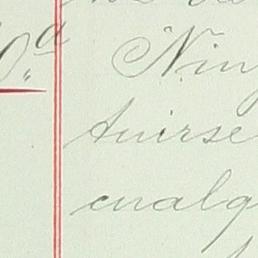 0ª
Nin
tuirse
cualq